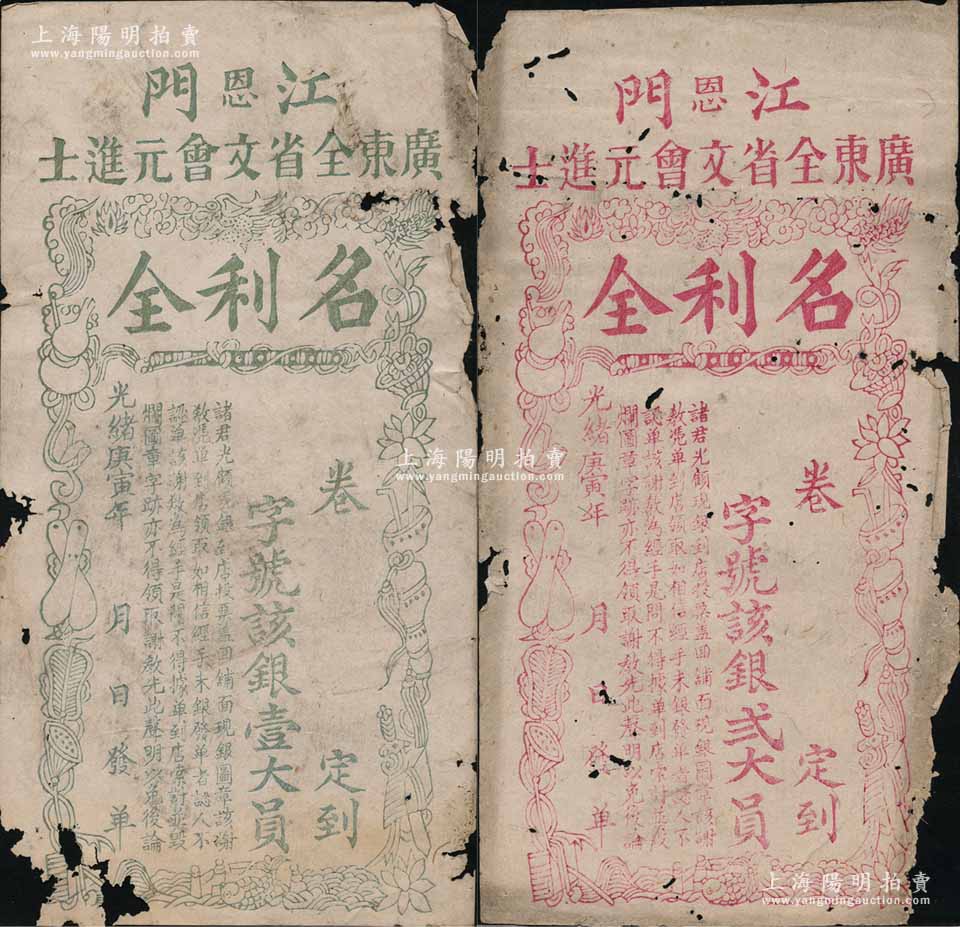 上海陽明拍賣
www.yangmingauction.com
江恩門
廣東全省文會元進士
名利全
卷 定到
字號該銀壹大員
諸君光顧現銀到店投票蓋回鋪面現銀圖章該謝
教憑單到店領取如相信經手未銀發單者認人不
認單該謝教為經手是問不得據單到店索討並毀
爛圖章字跡亦不得領取謝教先此聲明以免後論
光緒庚寅年 月 日發單
江恩門
廣東全省文會元進士
名利全
卷 定到
字號該銀弍大員
諸君光顧現銀到店投票蓋回鋪面現銀圖章該謝
教憑單到店領取如相信經手未銀發單者認人不
認單該謝教為經手是問不得據單到店索討並毀
爛圖章字跡亦不得領取謝教先此聲明以免後論
光緒庚寅年 月 日發單
上海陽明拍賣
www.yangmingauction.com
上海陽明拍賣
www.yangmingauction.com